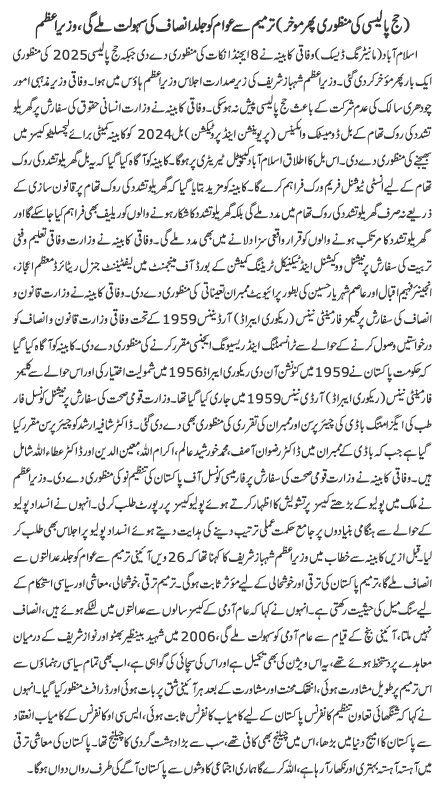 (حج پالیسی کی منظوری پھر موخر) ترمیم سے عوام کو جلد انصاف کی سہولت ملے گی، وزیراعظم
اسلام آباد (مانیٹرنگ ڈیسک) وفاقی کابینہ نے 8 ایجنڈا نکات کی منظوری دے دی جبکہ حج پالیسی 2025 کی منظوری
ایک بار پھر مؤخر کردی گئی۔ وزیراعظم شہباز شریف کی زیر صدارت اجلاس وزیراعظم ہاؤس میں ہوا۔ وفاقی وزیر مذہبی امور
چودھری سالک کی عدم شرکت کے باعث حج پالیسی پیش نہ ہوسکی۔ وفاقی کابینہ نے وزارت انسانی حقوق کی سفارش پر گھریلو
تشدد کی روک تھام کے بل ڈومیسٹک وائلینس (پریوینشن اینڈ پروٹیکشن) بل 2024 کو کابینہ کمیٹی برائے لیجسلیٹو کیسز میں
بھیجنے کی منظوری دے دی۔ اس بل کا اطلاق اسلام آباد کیپیٹل ٹیریٹری پر ہوگا۔ کابینہ کو آگاہ کیا گیا کہ یہ بل گھریلو تشدد کی روک
تھام کے لیے انسٹی ٹیوشنل فریم ورک فراہم کرے گا۔ کابینہ کو مزید بتایا گیا کہ گھریلو تشدد کی روک تھام پر قانون سازی کے
ذریعے نہ صرف گھریلو تشدد کی روک تھام میں مدد ملے گی بلکہ گھریلو تشدد کا شکار ہونے والوں کو ریلیف بھی فراہم کیا جاسکے گا اور
گھریلو تشدد کا مرتکب ہونے والوں کو قرار واقعی سزا دلانے میں بھی مدد ملے گی۔ وفاقی کابینہ نے وزارت وفاقی تعلیم وفنی
تربیت کی سفارش پر نیشنل ووکیشنل اینڈ ٹیکنیکل ٹریننگ کمیشن کے بورڈ آف مینجمنٹ میں لیفٹیننٹ جنرل ریٹائرڈ معظم اعجاز،
انجینئر فہیم اقبال اور عاصم شہریار حسین کی بطور پرائیویٹ ممبران تعیناتی کی منظوری دے دی۔ وفاقی کابینہ نے وزارت قانون و
انصاف کی سفارش پر کلیمز فار مینٹی نینس (ریکوری ایبراڈ) آرڈیننس 1959 کے تحت وفاقی وزارت قانون و انصاف کو
درخواستیں وصول کرنے کے حوالے سے ٹرانسمٹنگ اینڈ ریسیونگ ایجنسی مقرر کرنے کی منظوری دے دی۔ کابینہ کو آگاہ کیا گیا
کہ حکومت پاکستان نے 1959 میں کنونشن آن دی ریکوری ایبراڈ 1956 میں شمولیت اختیار کی اور اس حوالے سے کلیمز
فار مینٹی نینس (ریکوری ایبراڈ) آرڈی نینس 1959 میں جاری کیا گیا تھا۔ وزارت قومی صحت کی سفارش پر نیشنل کونسل فار
طب کی ایگزامننگ باڈی کی چیئرپرسن اور ممبران کی تقرری کی منظوری بھی دے دی گئی۔ ڈاکٹر شافیہ ارشد کو چیئر پرسن مقرر کیا گیا
ہے جب کہ باڈی کے ممبران میں ڈاکٹر رضوان آصف، محمد خورشید عالم، اکرام اللہ، معین الدین اور ڈاکٹر عطاء اللہ شامل
ہیں۔ وفاقی کابینہ نے وزارت قومی صحت کی سفارش پر فارمیسی کونسل آف پاکستان کی تنظیم نو کی منظوری دے دی۔ وزیراعظم
نے ملک میں پولیو کے بڑھتے کیسز پر تشویش کا اظہار کرتے ہوئے پولیو کیسز پر رپورٹ طلب کرلی۔ انہوں نے انسداد پولیو
کے حوالے سے ہنگامی بنیادوں پر جامع حکمت عملی ترتیب دینے کی ہدایت دیتے ہوئے انسداد پولیو پر اجلاس بھی طلب کر
لیا۔ قبل ازیں کابینہ سے خطاب میں وزیراعظم شہباز شریف کا کہنا تھا کہ 26 ویں آئینی ترمیم سے عوام کو جلد عدالتوں سے
انصاف ملے گا، ترمیم پاکستان کی ترقی اور خوشحالی کے لیے مؤثر ثابت ہوگی۔ ترمیم ترقی، خوشحالی، معاشی اور سیاسی استحکام کے
لیے سنگ میل کی حیثیت رکھتی ہے۔ انہوں نے کہا کہ عام آدمی کے کیسز سالوں سے عدالتوں میں لٹکے ہوئے ہیں، انصاف
نہیں ملتا، آئینی بنچ کے قیام سے عام آدمی کو سہولت ملے گی، 2006 میں شہید بینظیر بھٹو اور نواز شریف کے درمیان
معاہدے پر دستخط ہوئے تھے، یہ اس ویژن کی بھی تکمیل ہے اور اس کی سچائی کی گواہی ہے، اب بھی تمام سیاسی رہنماؤں سے
اس ترمیم پر طویل مشاورت ہوئی، انتھک محنت اور مشاورت کے بعد ہر آئینی شق پر بات ہوئی اور ڈرافٹ منظور کیا گیا۔ انہوں
نے کہا کہ شنگھائی تعاون تنظیم کانفرنس پاکستان کے لیے کامیاب کانفرنس ثابت ہوئی، ایس سی او کانفرنس کے کامیاب انعقاد
سے پاکستان کا امیج دنیا میں بڑھا، اس میں چیلنج بھی کافی تھے، سب سے بڑا دہشت گردی کا چیلنج تھا۔ پاکستان کی معاشی ترقی
میں آہستہ آہستہ بہتری اور نکھار آ رہا ہے، اللہ کرے گا ہماری اجتماعی کاوشوں سے پاکستان آگے کی طرف رواں دواں ہوگا۔